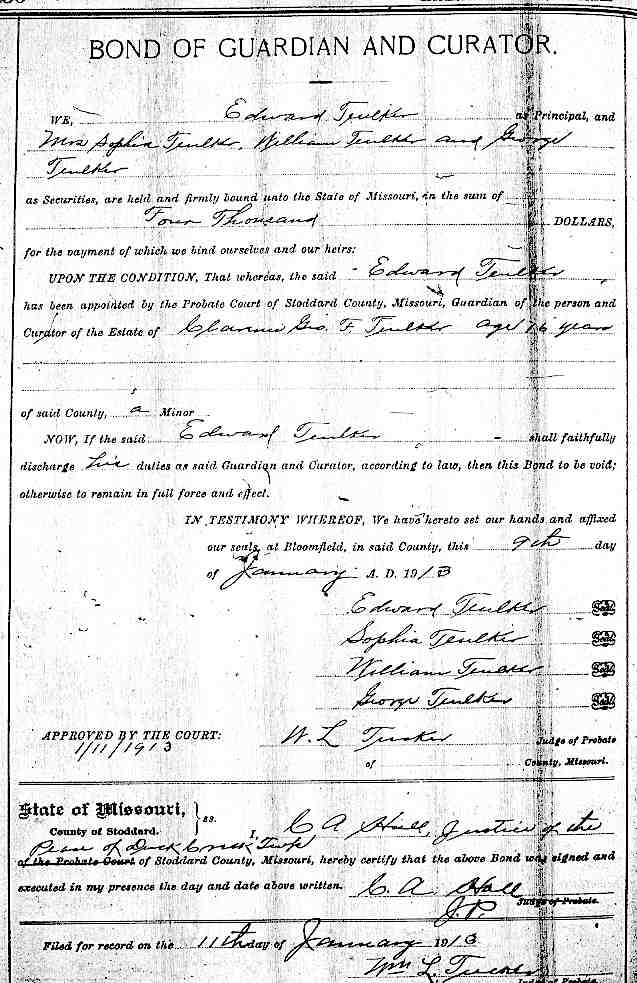 BOND OF GUARDIAN AND CURATOR.
WE, Edward Teulker as Principal, and
Mrs Sophia Teulker, William Teulker and George
Teulker
as Securities, are held and firmly bound unto the State of Missouri, in the sum of
Four Thousand DOLLARS,
for the payment of which we bind ourselves and our heirs:
UPON THE CONDITION, That whereas, the said Edward Teulker
has been appointed by the Probate Court of Stoddard County, Missouri, Guardian of the person and
Curator of the Estate of Clarence Geo. F. Teulker age 16 years
of said County, a Minor
NOW, If the said Edward Teulker shall faithfully
discharge his duties as said Guardian and Curator, according to law, then this Bond to be void;
otherwise to remain in full force and effect.
IN TESTIMONY WHEREOF, We have hereto set our hands and affixed
our seals, at Bloomfield, in said County, this 9th day
of January A. D. 1913
Edward Teulker Seal
Sophia Teulker Seal
William Teulker Seal
George Teulker Seal
APPROVED BY THE COURT: W. L Tucker Judge of Probate
1/11/1913
of County, Missouri.
State of Missouri,
County of Stoddard. } ss. I, C A Hall, Justice of the
Peace of Duck Creek Twp
of the Probate Court of Stoddard County, Missouri, hereby certify that the above Bond was signed and
executed in my presence the day and date above written. C. A. Hall
J.P. Judge of Probate.
Filed for record on the 11th day of January 1913
Wm L. Tucker
Judge of Probate